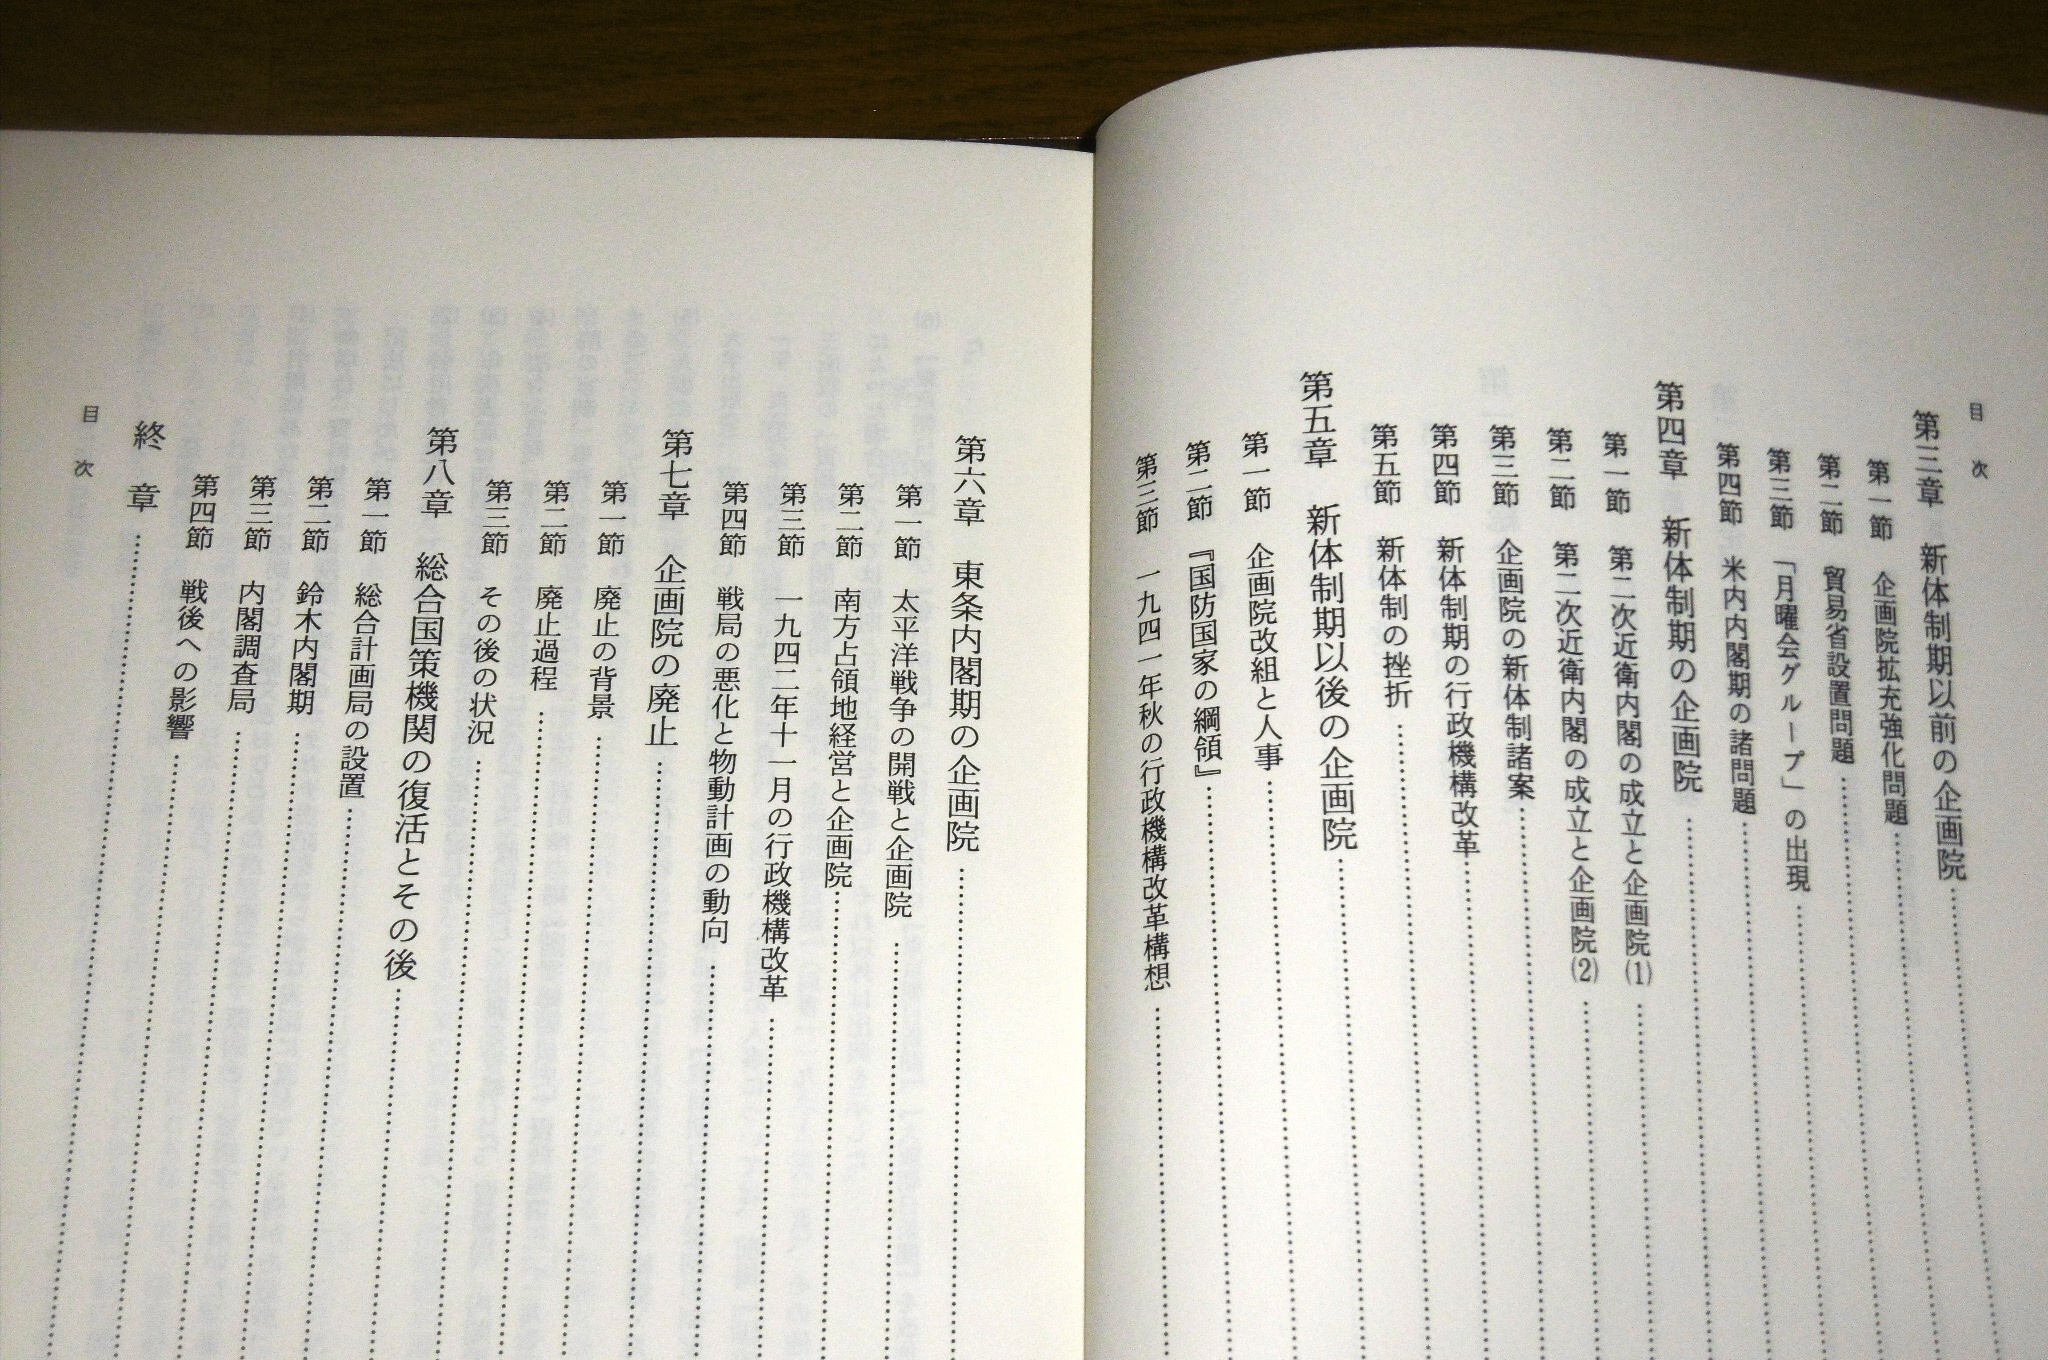 目次
第三章 新体制期以前の企画院
第一節 企画院拡充強化問題
第二節 貿易省設置問題
第三節 「月曜会グループ」の出現
第四節 米内内閣期の諸問題
第四章 新体制期の企画院
第一節 第二次近衛内閣の成立と企画院(1)
第二節 第二次近衛内閣の成立と企画院(2)
第三節 企画院の新体制諸案
第四節 新体制期の行政機構改革
第五節 新体制の挫折
第五章 新体制期以後の企画院
第一節 企画院改組と人事
第二節 『国防国家の綱領』
第三節 一九四一年秋の行政機構改革構想
第六章 東条内閣期の企画院
第一節 太平洋戦争の開戦と企画院
第二節 南方占領地経営と企画院
第三節 一九四二年十一月の行政機構改革
第四節 戦局の悪化と物動計画の動向
第七章 企画院の廃止
第一節 廃止の背景
第二節 廃止過程
第三節 その後の状況
第八章 総合国策機関の復活とその後
第一節 総合計画局の設置
第二節 鈴木内閣期
第三節 内閣調査局
第四節 戦後への影響
終章
目次